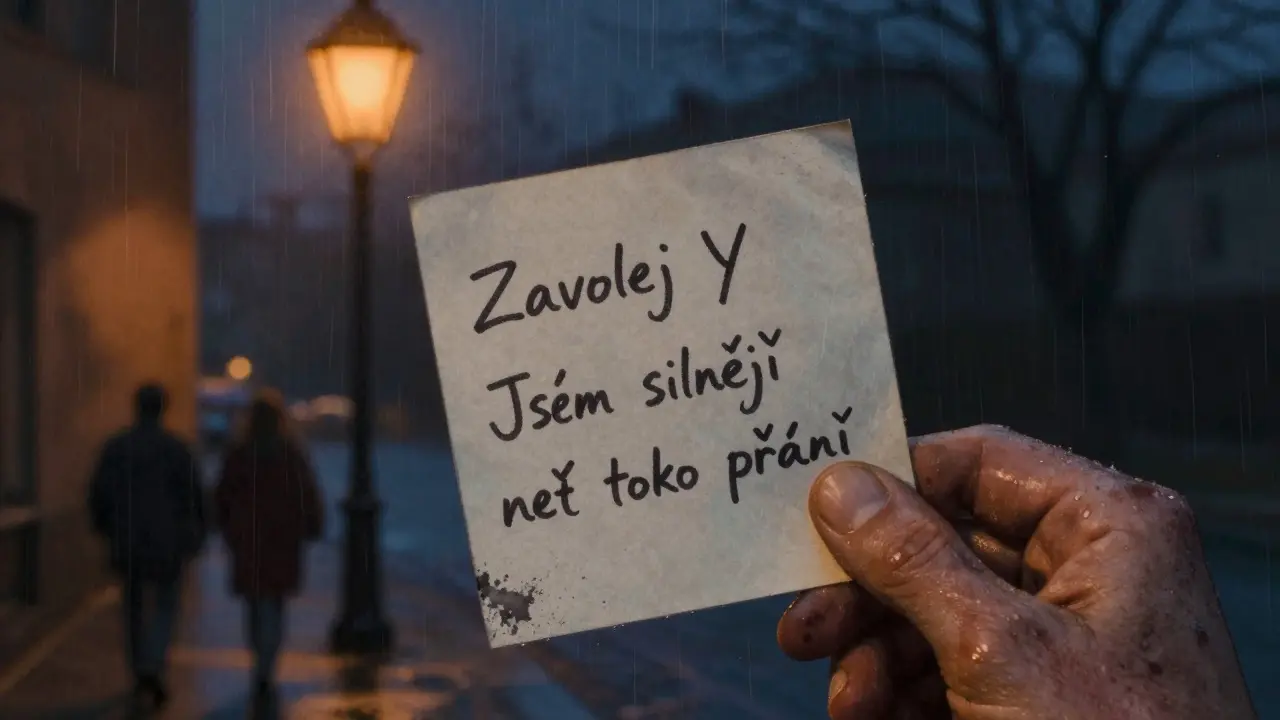 Zavolej Y
Jsém silnějǐ
neť toko přánǐ